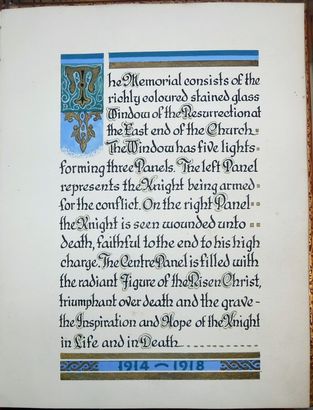 The Memorial consists of the
richly coloured stained glass
Window of the Resurrection at
the East end of the Church.
The Window has five lights
forming three Panels. The left Panel
represents the Knight being armed
for the conflict. On the right Panel
the Knight is seen wounded unto
death, faithful to the end to his high
charge. The Centre Panel is filled with
the radiant Figure of the Risen Christ,
triumphant over death and the grave -
the Inspiration and Hope of the Knight
in Life and in Death
1914 - 1918